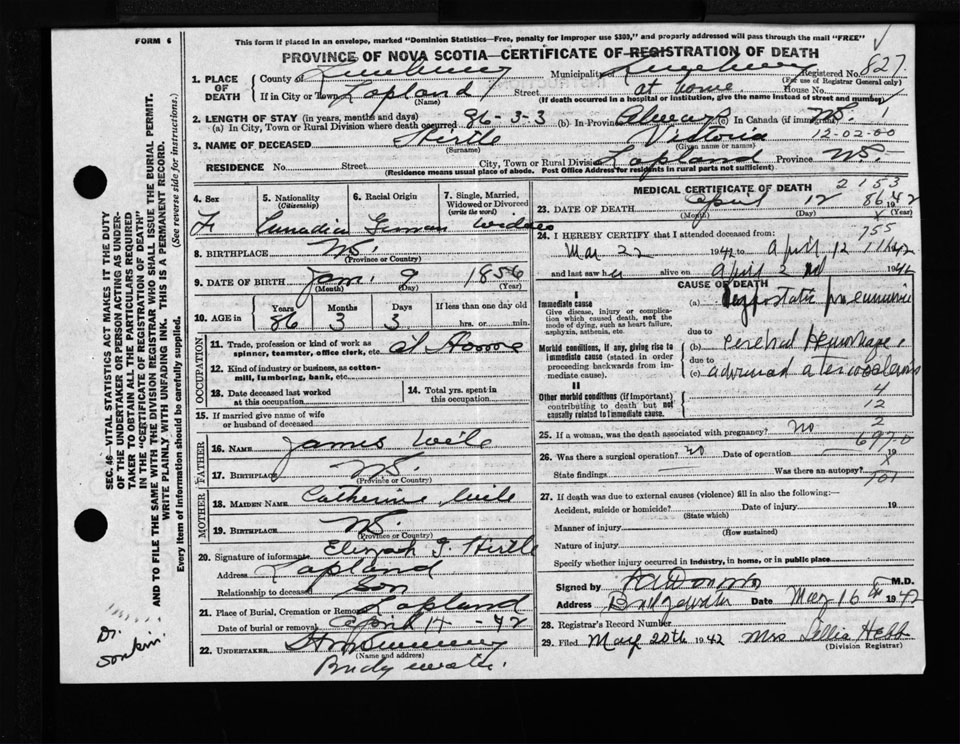 FORM 6
This form if placed in an envelope, marked "Dominion Statistics—Free, penalty for improper use $300," and properly addressed will pass through the mail "FREE"
PROVINCE OF NOVA SCOTIA—CERTIFICATE OF REGISTRATION OF DEATH
1. PLACE OF DEATH
County of Lunenburg Municipality of Lunenburg Registered No. 827
(For use of Registrar General only)
If in City or Town Lapland Street at home House No.
(Name) (If death occurred in a hospital or institution, give the name instead of street and number)
2. LENGTH OF STAY (in years, months and days)
(a) In City, Town or Rural Division where death occurred 86-3-3 (b) In Province Always (c) In Canada (if immigrant)
NS. 1
12-02-00
3. NAME OF DECEASED Hirtle Victoria
(Surname) (Given name or names)
RESIDENCE No. Street City, Town or Rural Division Lapland Province NS.
(Residence means usual place of abode. Post Office Address for residents in rural parts not sufficient)
4. Sex F
5. Nationality (Citizenship) Canadian
6. Racial Origin German
7. Single, Married, Widowed or Divorced (write the word) Widow
8. BIRTHPLACE NS.
(Province or Country)
9. DATE OF BIRTH Jan. 9 1856
(Month) (Day) (Year)
10. AGE in Years Months Days If less than one day old
86 3 3 hrs. or min.
OCCUPATION
11. Trade, profession or kind of work as spinner, teamster, office clerk, etc. at Home
12. Kind of industry or business, as cotton-mill, lumbering, bank, etc.
13. Date deceased last worked at this occupation
14. Total yrs. spent in this occupation
15. If married give name of wife or husband of deceased
FATHER
16. NAME James Weile
17. BIRTHPLACE NS.
(Province or Country)
MOTHER
18. MAIDEN NAME Catherine Weile
19. BIRTHPLACE NS.
(Province or Country)
20. Signature of informant Elizah I. Hirtle
Address Lapland
Relationship to deceased Son
21. Place of Burial, Cremation or Removal Lapland
Date of burial or removal April 14 - 42
22. UNDERTAKER
(Name and address)
MEDICAL CERTIFICATE OF DEATH
2153
23. DATE OF DEATH April 12 1942
86
(Month) (Day) (Year)
X
755
24. I HEREBY CERTIFY that I attended deceased from:
Mar 22 1942 to April 12 1942
and last saw her alive on April 2nd 1942
CAUSE OF DEATH
I
Immediate cause
Give disease, injury or complication which caused death, not the mode of dying, such as heart failure, asphyxia, asthenia, etc.
(a) Hypostatic pneumonia
due to
Morbid conditions, if any, giving rise to immediate cause (stated in order proceeding backwards from immediate cause).
(b) Cerebral Hemorrhage
due to
(c) advanced
II
Other morbid conditions (if important) contributing to death but not causally related to immediate cause.
4
12
2
25. If a woman, was the death associated with pregnancy? no
697-0
26. Was there a surgical operation? no Date of operation 19
X
State findings Was there an autopsy?
101
27. If death was due to external causes (violence) fill in also the following:—
Accident, suicide or homicide? Date of injury 19
(State which)
Manner of injury
(How sustained)
Nature of injury
Specify whether injury occurred in industry, in home, or in public place
Signed by M.D.
Address Bridgewater Date May 16 1942
28. Registrar's Record Number
29. Filed May 20th 1942 Mrs Lellia Hebb
(Division Registrar)
SEC. 46—VITAL STATISTICS ACT MAKES IT THE DUTY OF THE UNDERTAKER OR PERSON ACTING AS UNDERTAKER TO OBTAIN ALL THE PARTICULARS REQUIRED IN THE "CERTIFICATE OF REGISTRATION OF DEATH"
AND TO FILE THE SAME WITH THE DIVISION REGISTRAR WHO SHALL ISSUE THE BURIAL PERMIT.
WRITE PLAINLY WITH UNFADING INK. THIS IS A PERMANENT RECORD.
Every item of information should be carefully supplied. (See reverse side for instructions.)
Dr.